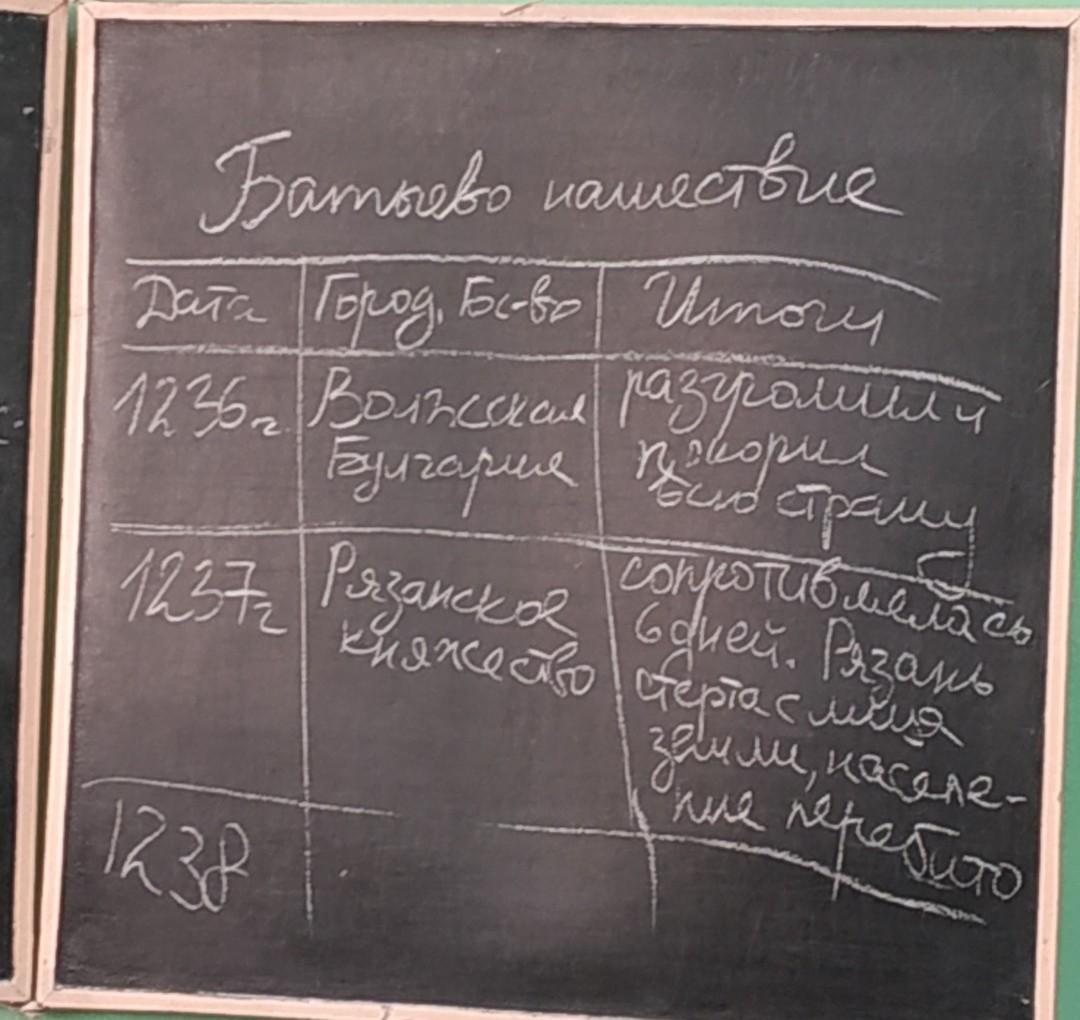 Батыево нашествие
Дата Город, Бс-во Итоги
1236г. Волжская разгромили
Булгария покорил
всю страну
1237г Рязанское сопротивлялась
княжество 6 дней. Рязань
стерта с лица
земли, населе-
ние перебито
1238